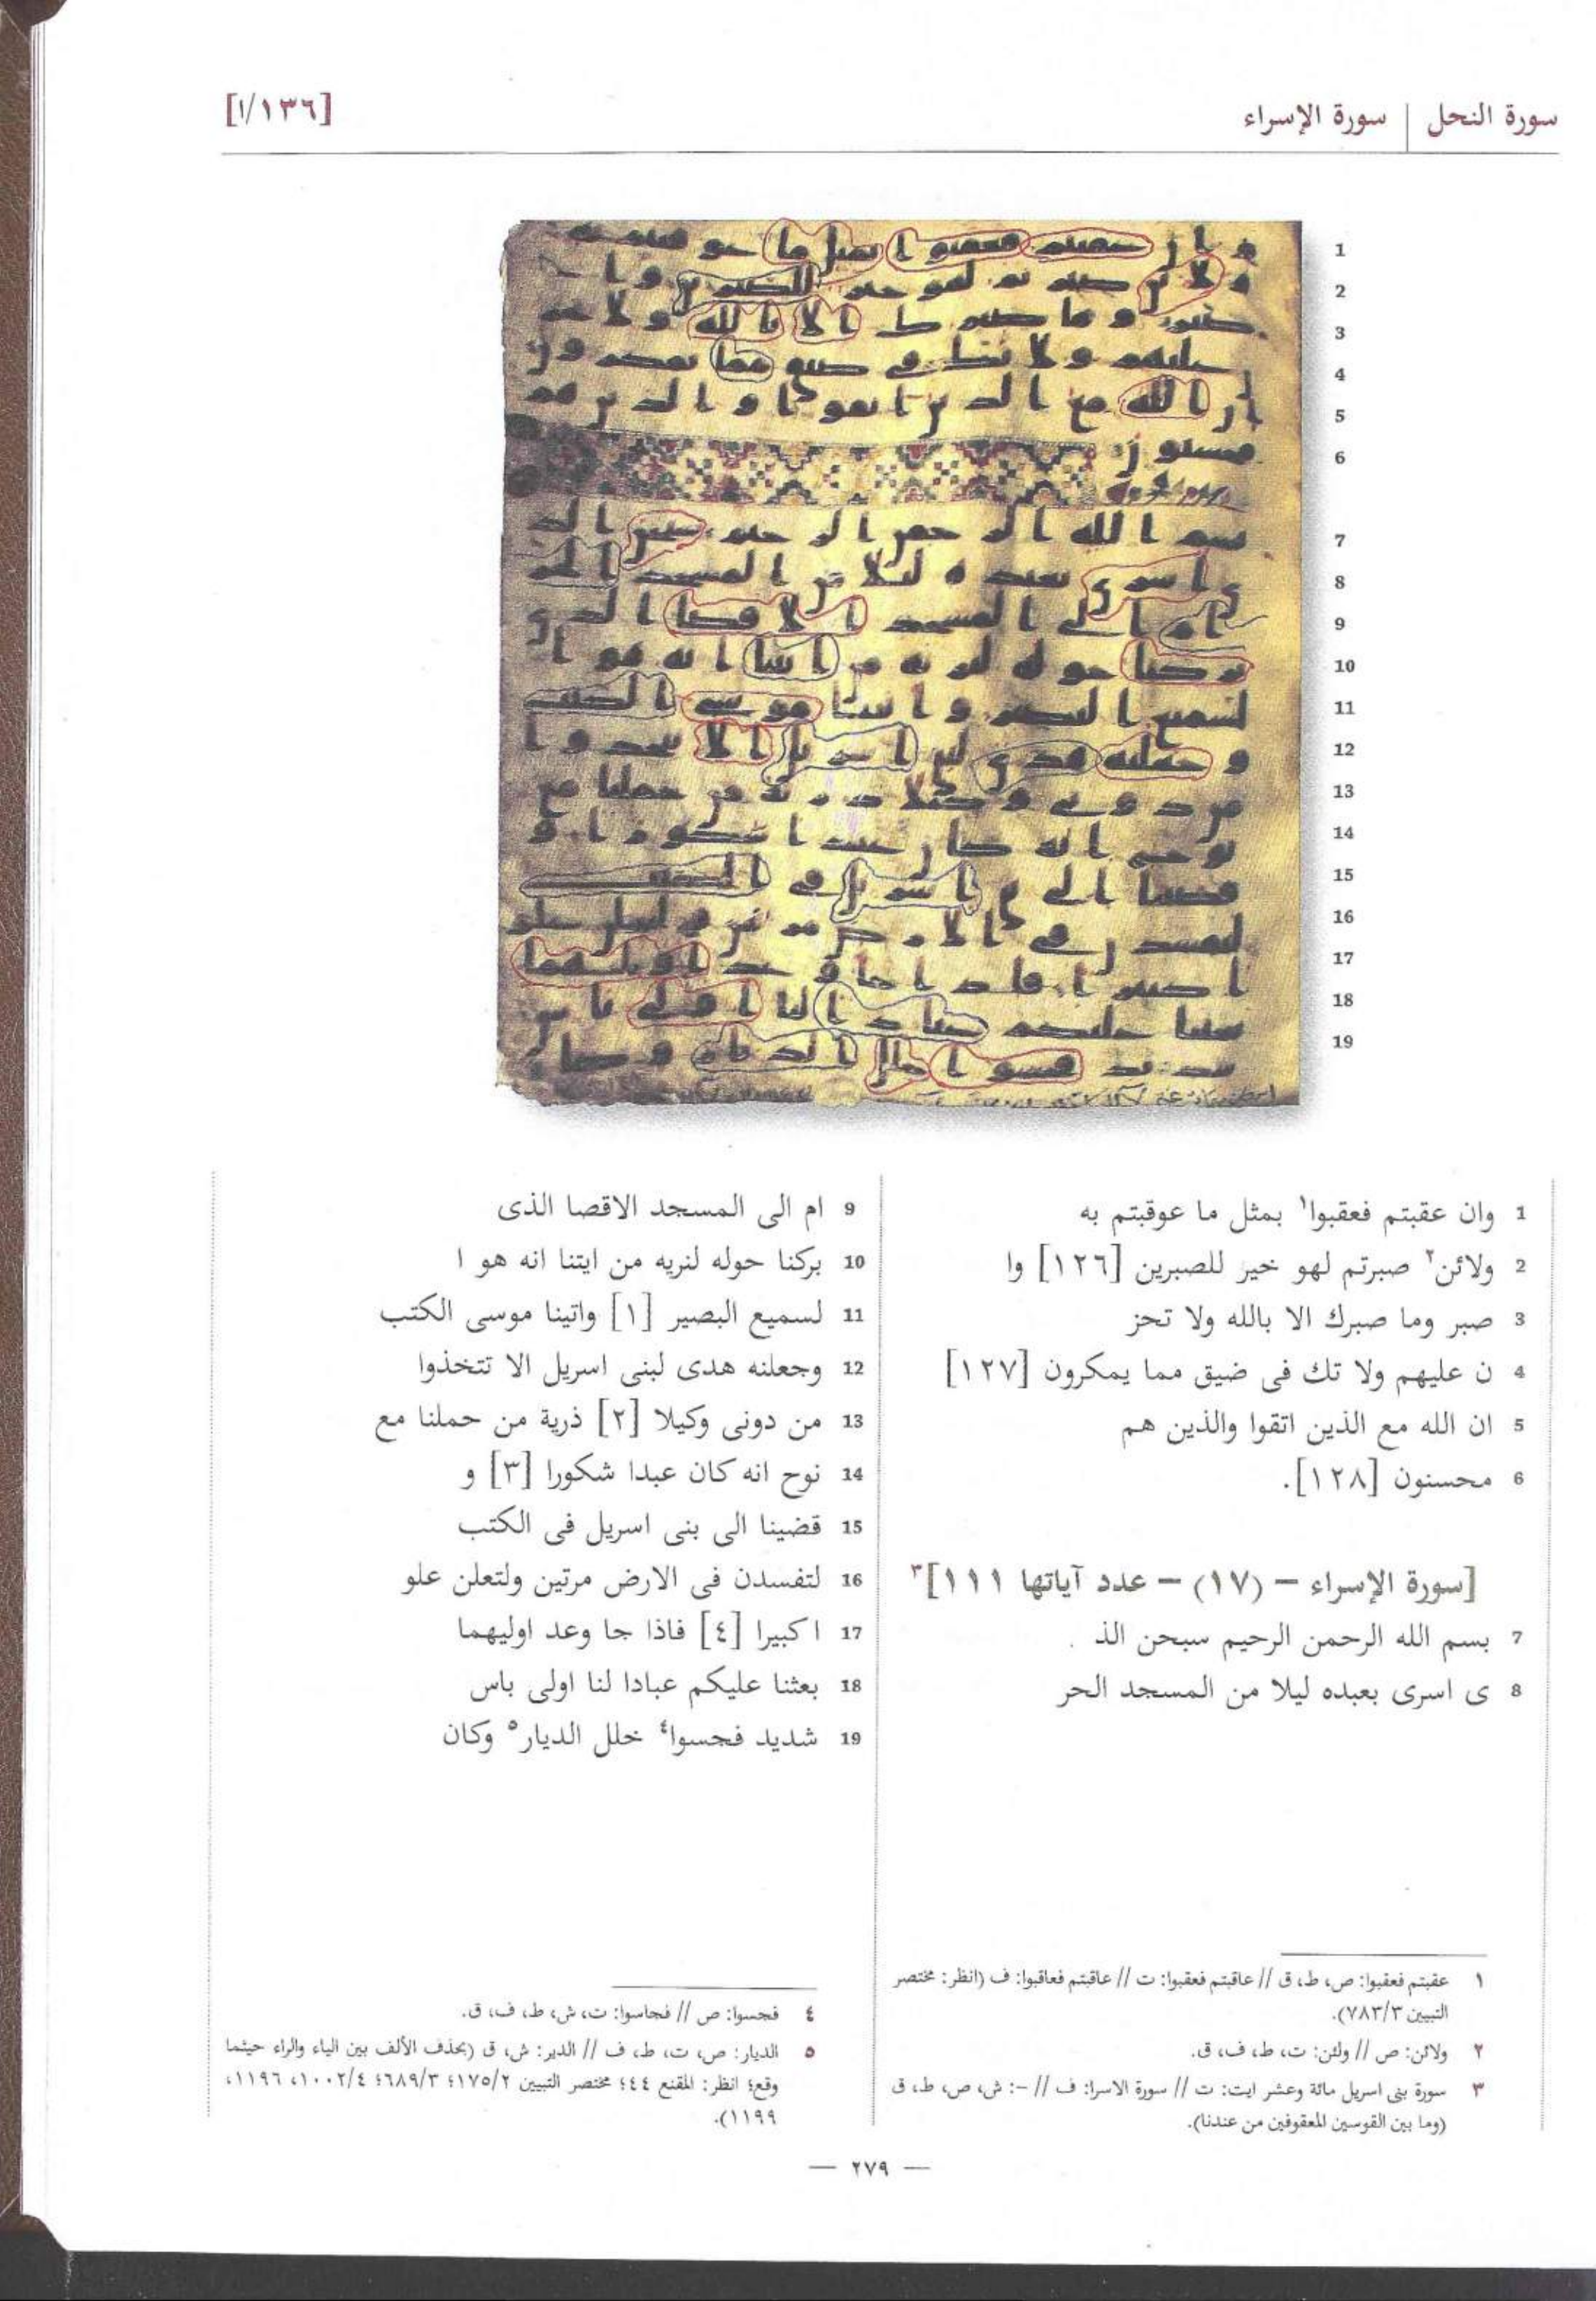 سورة النحل | سورة الإسراء
[١٣٦/ا]
1 وان عقبتم فعقبوا١ بمثل ما عوقبتم به
2 ولائن٢ صبرتم لهو خير للصبرين [١٢٦] وا
3 صبر وما صبرك الا بالله ولا تحز
4 ن عليهم ولا تك فى ضيق مما يمكرون [١٢٧]
5 ان الله مع الذين اتقوا والذين هم
6 محسنون [١٢٨].
[سورة الإسراء – (١٧) – عدد آياتها ١١١]٣
7 بسم الله الرحمن الرحيم سبحن الذ
8 ى اسرى بعبده ليلا من المسجد الحر
9 ام الى المسجد الاقصا الذى
10 بركنا حوله لنريه من ايتنا انه هو ا
11 لسميع البصير [١] واتينا موسى الكتب
12 وجعلنه هدى لبنى اسريل الا تتخذوا
13 من دونى وكيلا [٢] ذرية من حملنا مع
14 نوح انه كان عبدا شكورا [٣] و
15 قضينا الى بنى اسريل فى الكتب
16 لتفسدن فى الارض مرتين ولتعلن علو
17 ا كبيرا [٤] فاذا جا وعد اوليهما
18 بعثنا عليكم عبادا لنا اولى باس
19 شديد فحسوا٤ خلل الديار٥ وكان
١ عقبتم فعقبوا: ص، ط، ق // عاقبتم فعقبوا: ت // عاقبتم فعاقبوا: ف (انظر: مختصر
التبيين ٧٨٣/٣).
٢ ولائن: ص // ولئن: ت، ط، ف، ق.
٣ سورة بنى اسريل مائة وعشر ايت: ت // سورة الاسرا: ف // –: ش، ص، ط، ق
(وما بين القوسين المعقوفين من عندنا).
٤ فجسوا: ص // فجاسوا: ت، ش، ط، ف، ق.
٥ الديار: ص، ت، ط، ف // الدير: ش، ق (بحذف الألف بين الياء والراء حيثما
وقع؛ انظر: المقنع ٤٤؛ مختصر التبيين ١٧٥/٢؛ ٦٨٩/٣؛ ١٠٠٢/٤، ١١٩٦،
١١٩٩).
— ٢٧٩ —